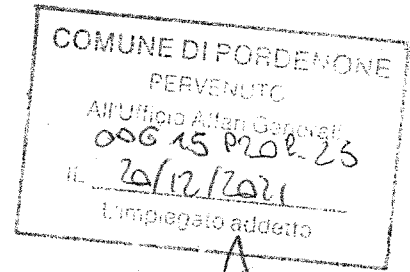 COMUNE DI PORDENONE
PERVENUTO
All'Ufficio Affari Generali
IL 20/12/2021
L'impiegato addetto